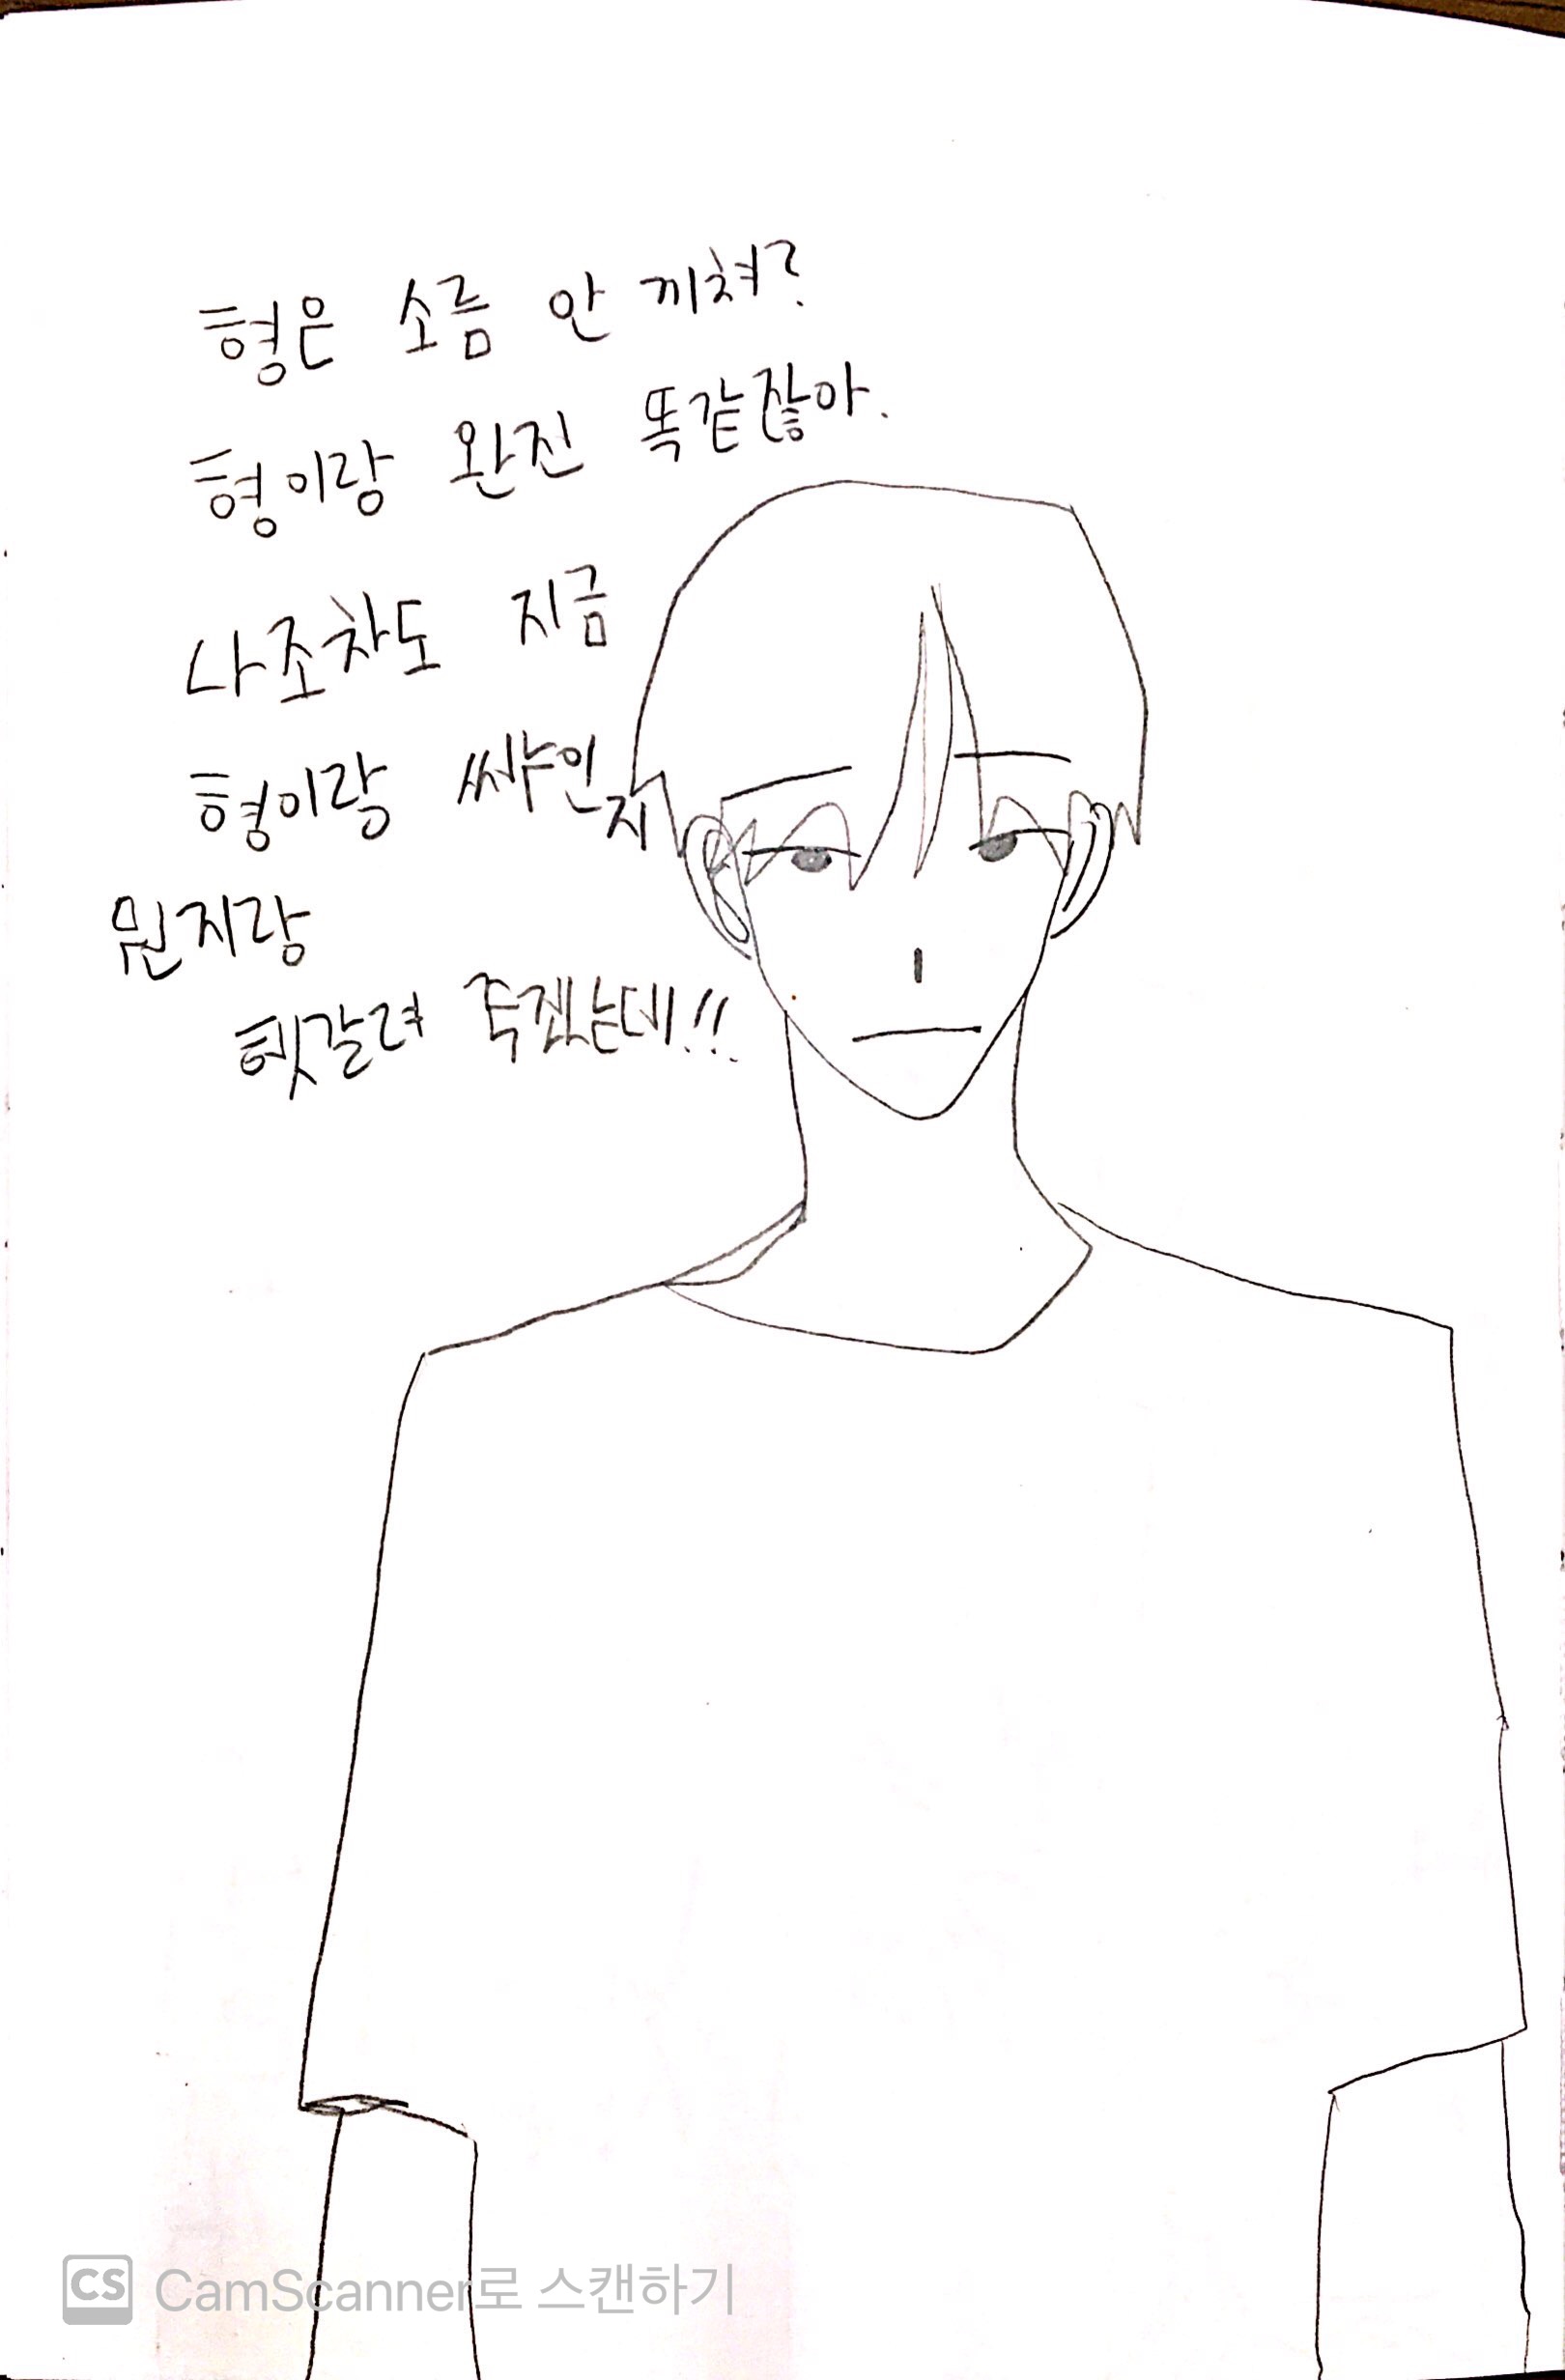 형은 소름 안 끼쳐?
형이랑 완전 똑같잖아.
나조차도 지금
형이랑 싸우인지
뭔지랑
헷갈려 죽겠는데!!
CS CamScanner로 스캔하기